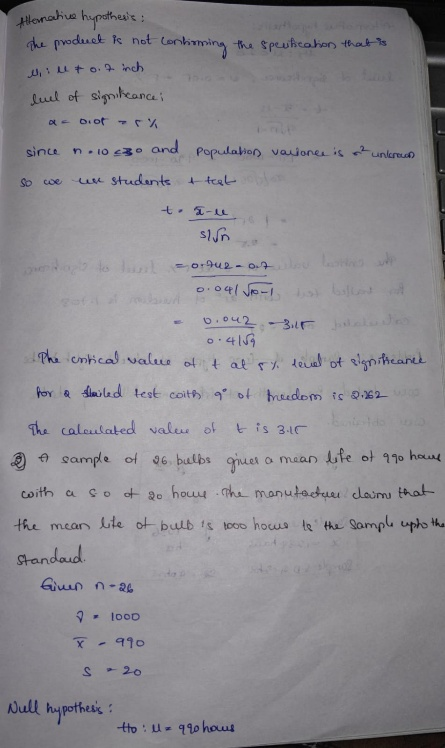 Alternative hypothesis :
The product is not confirming the specification that is
μ₁ : μ ≠ 0.7 inch
level of significance :
α = 0.05 = 5 %
since n = 10 ≤ 30 and population variance is σ² unknown
so we use students t test
t = x̄ - μ
s/√n
= 0.742 - 0.7
0.04/√10-1
= 0.042 = 3.15
0.4/√9
The critical value of t at 5% level of significance
for a tailed test with 9° of freedom is 2.262
The calculated value of t is 3.15
2) A sample of 26 bulbs gives a mean life of 990 hours
with a S D of 20 hours. The manufacturer claims that
the mean life of bulb is 1000 hours Is the sample upto the
standard.
Given n = 26
= 1000
x̄ = 990
s = 20
Null hypothesis :
H0 : μ = 990 hours